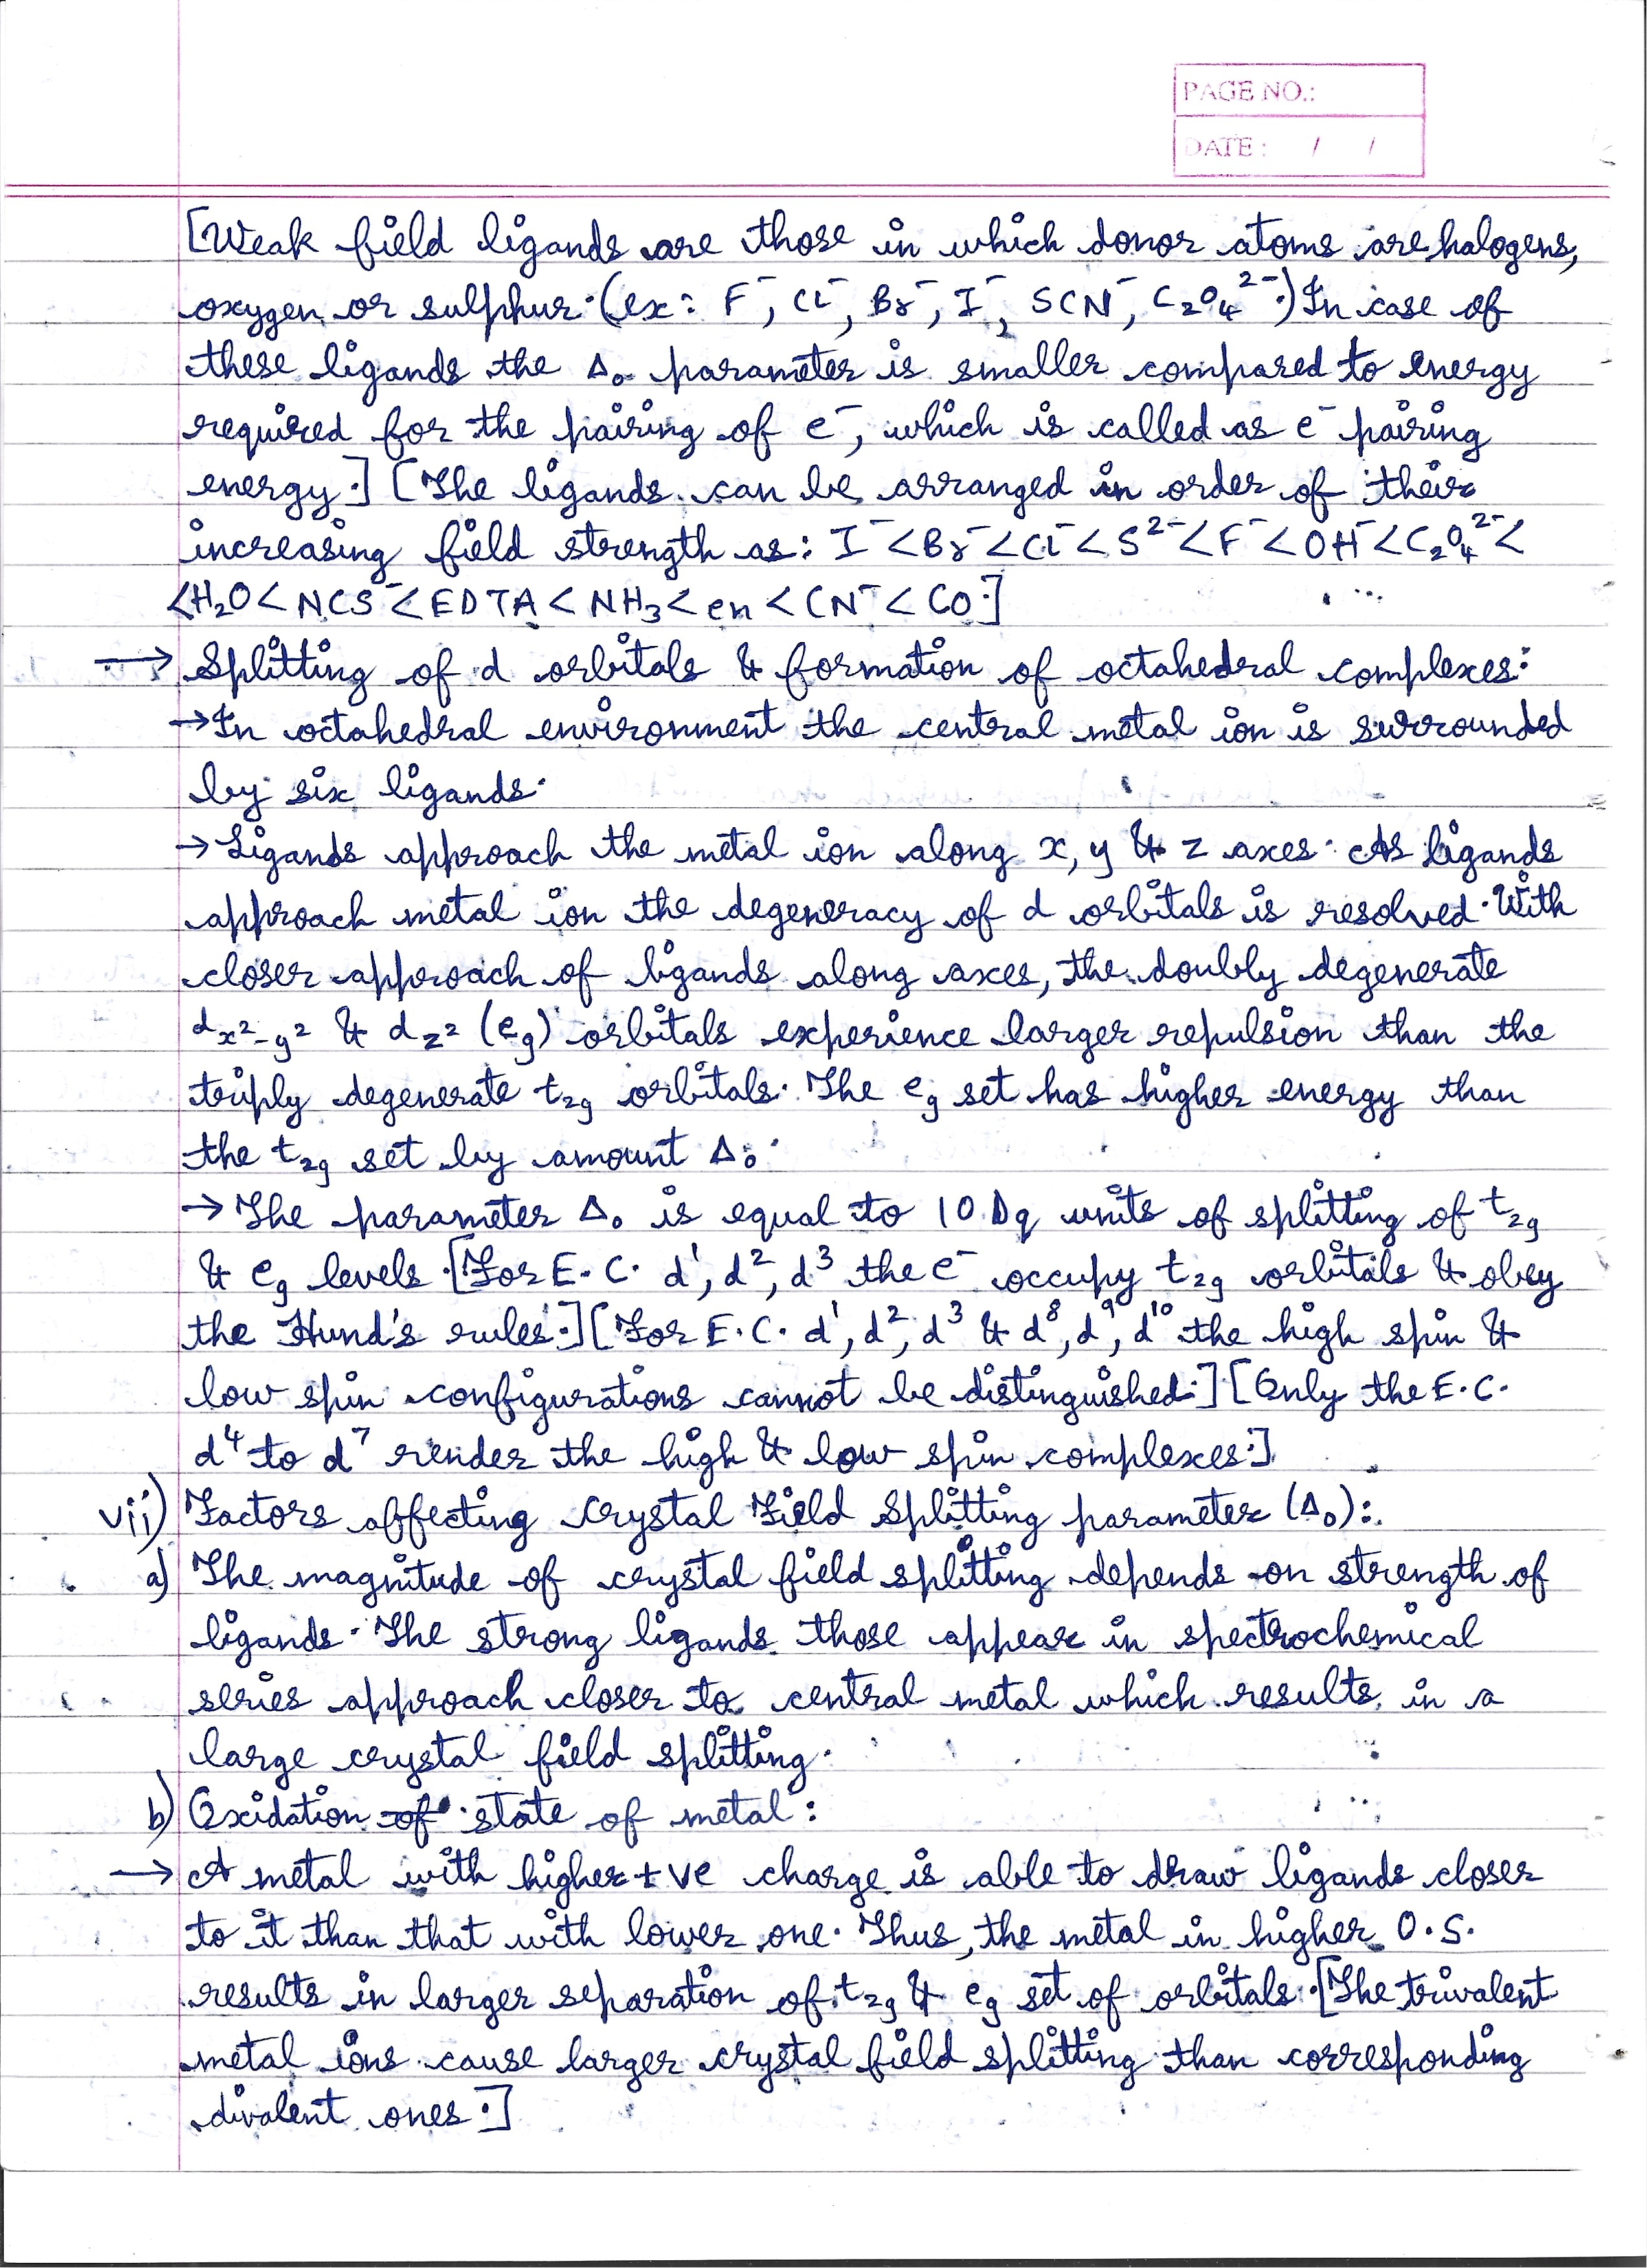 PAGE NO.:
DATE: / /
[Weak field ligands are those in which donor atoms are halogens,
oxygen or sulphur. (ex: F⁻, Cl⁻, Br⁻, I⁻, SCN⁻, C₂O₄²⁻.) In case of
these ligands the Δ₀ parameter is smaller compared to energy
required for the pairing of e⁻, which is called as e⁻ pairing
energy.] [The ligands can be arranged in order of their
increasing field strength as: I⁻<Br⁻<Cl⁻<S²⁻<F⁻<OH⁻<C₂O₄²⁻<
<H₂O<NCS⁻<EDTA<NH₃<en<CN⁻<CO.]
→ Splitting of d orbitals & formation of octahedral complexes:
→ In octahedral environment the central metal ion is surrounded
by six ligands.
→ Ligands approach the metal ion along x, y & z axes. As ligands
approach metal ion the degeneracy of d orbitals is resolved. With
closer approach of ligands along axes, the doubly degenerate
dx²-y² & dz² (eg) orbitals experience larger repulsion than the
triply degenerate t₂g orbitals. The eg set has higher energy than
the t₂g set by amount Δ₀.
→ The parameter Δ₀ is equal to 10 Dq units of splitting of t₂g
& eg levels. [For E.C. d¹, d², d³ the e⁻ occupy t₂g orbitals & obey
the Hund's rules.] [For E.C. d¹, d², d³ & d⁸, d⁹, d¹⁰ the high spin &
low spin configurations cannot be distinguished.] [Only the E.C.
d⁴ to d⁷ render the high & low spin complexes.]
vii) Factors affecting Crystal Field Splitting parameter (Δ₀):
a) The magnitude of crystal field splitting depends on strength of
ligands. The strong ligands those appear in spectrochemical
series approach closer to central metal which results in a
large crystal field splitting.
b) Oxidation of state of metal:
→ A metal with higher +ve charge is able to draw ligands closer
to it than that with lower one. Thus, the metal in higher O.S.
results in larger separation of t₂g & eg set of orbitals. [The trivalent
metal ions cause larger crystal field splitting than corresponding
divalent ones.]